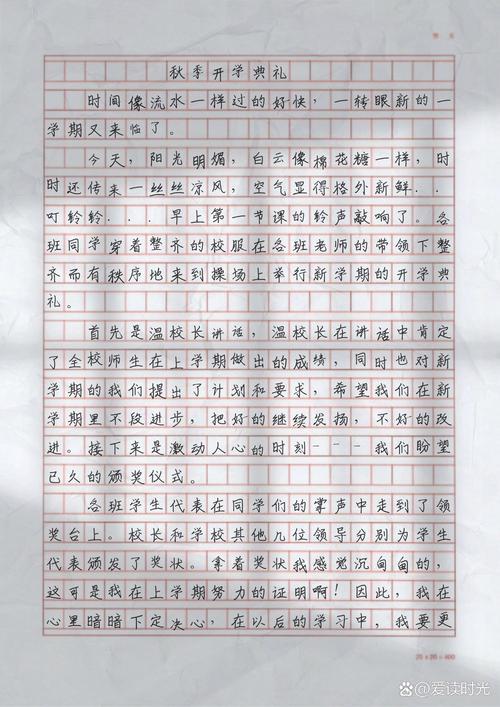 秋季开学典礼
时间像流水一样过的好快，一转眼新的一
学期又来临了。
今天，阳光明媚，白云像棉花糖一样，时
时还传来一丝丝凉风，空气显得格外新鲜..
叮铃铃...早上第一节课的铃声敲响了。各
班同学穿着整齐的校服在各班老师的带领下整
齐而有秩序地来到操场上举行新学期的开学典
礼。
首先是温校长讲话，温校长在讲话中肯定
了全校师生在上学期做出的成绩，同时也对新
学期的我们提出了计划和要求，希望我们在新
学期里不段进步，把好的继续发扬，不好的改
进。接下来是激动人心的时刻---我们盼望
已久的颁奖仪式。
各班学生代表在同学们的掌声中走到了领
奖台上。校长和学校其他几位领导分别为学生
代表颁发了奖状。拿着奖状我感觉沉甸甸的，
这可是我在上学期努力的证明啊！因此，我在
心里暗暗下定决心，在以后的学习中，我要更
20×20=400
爱读时光